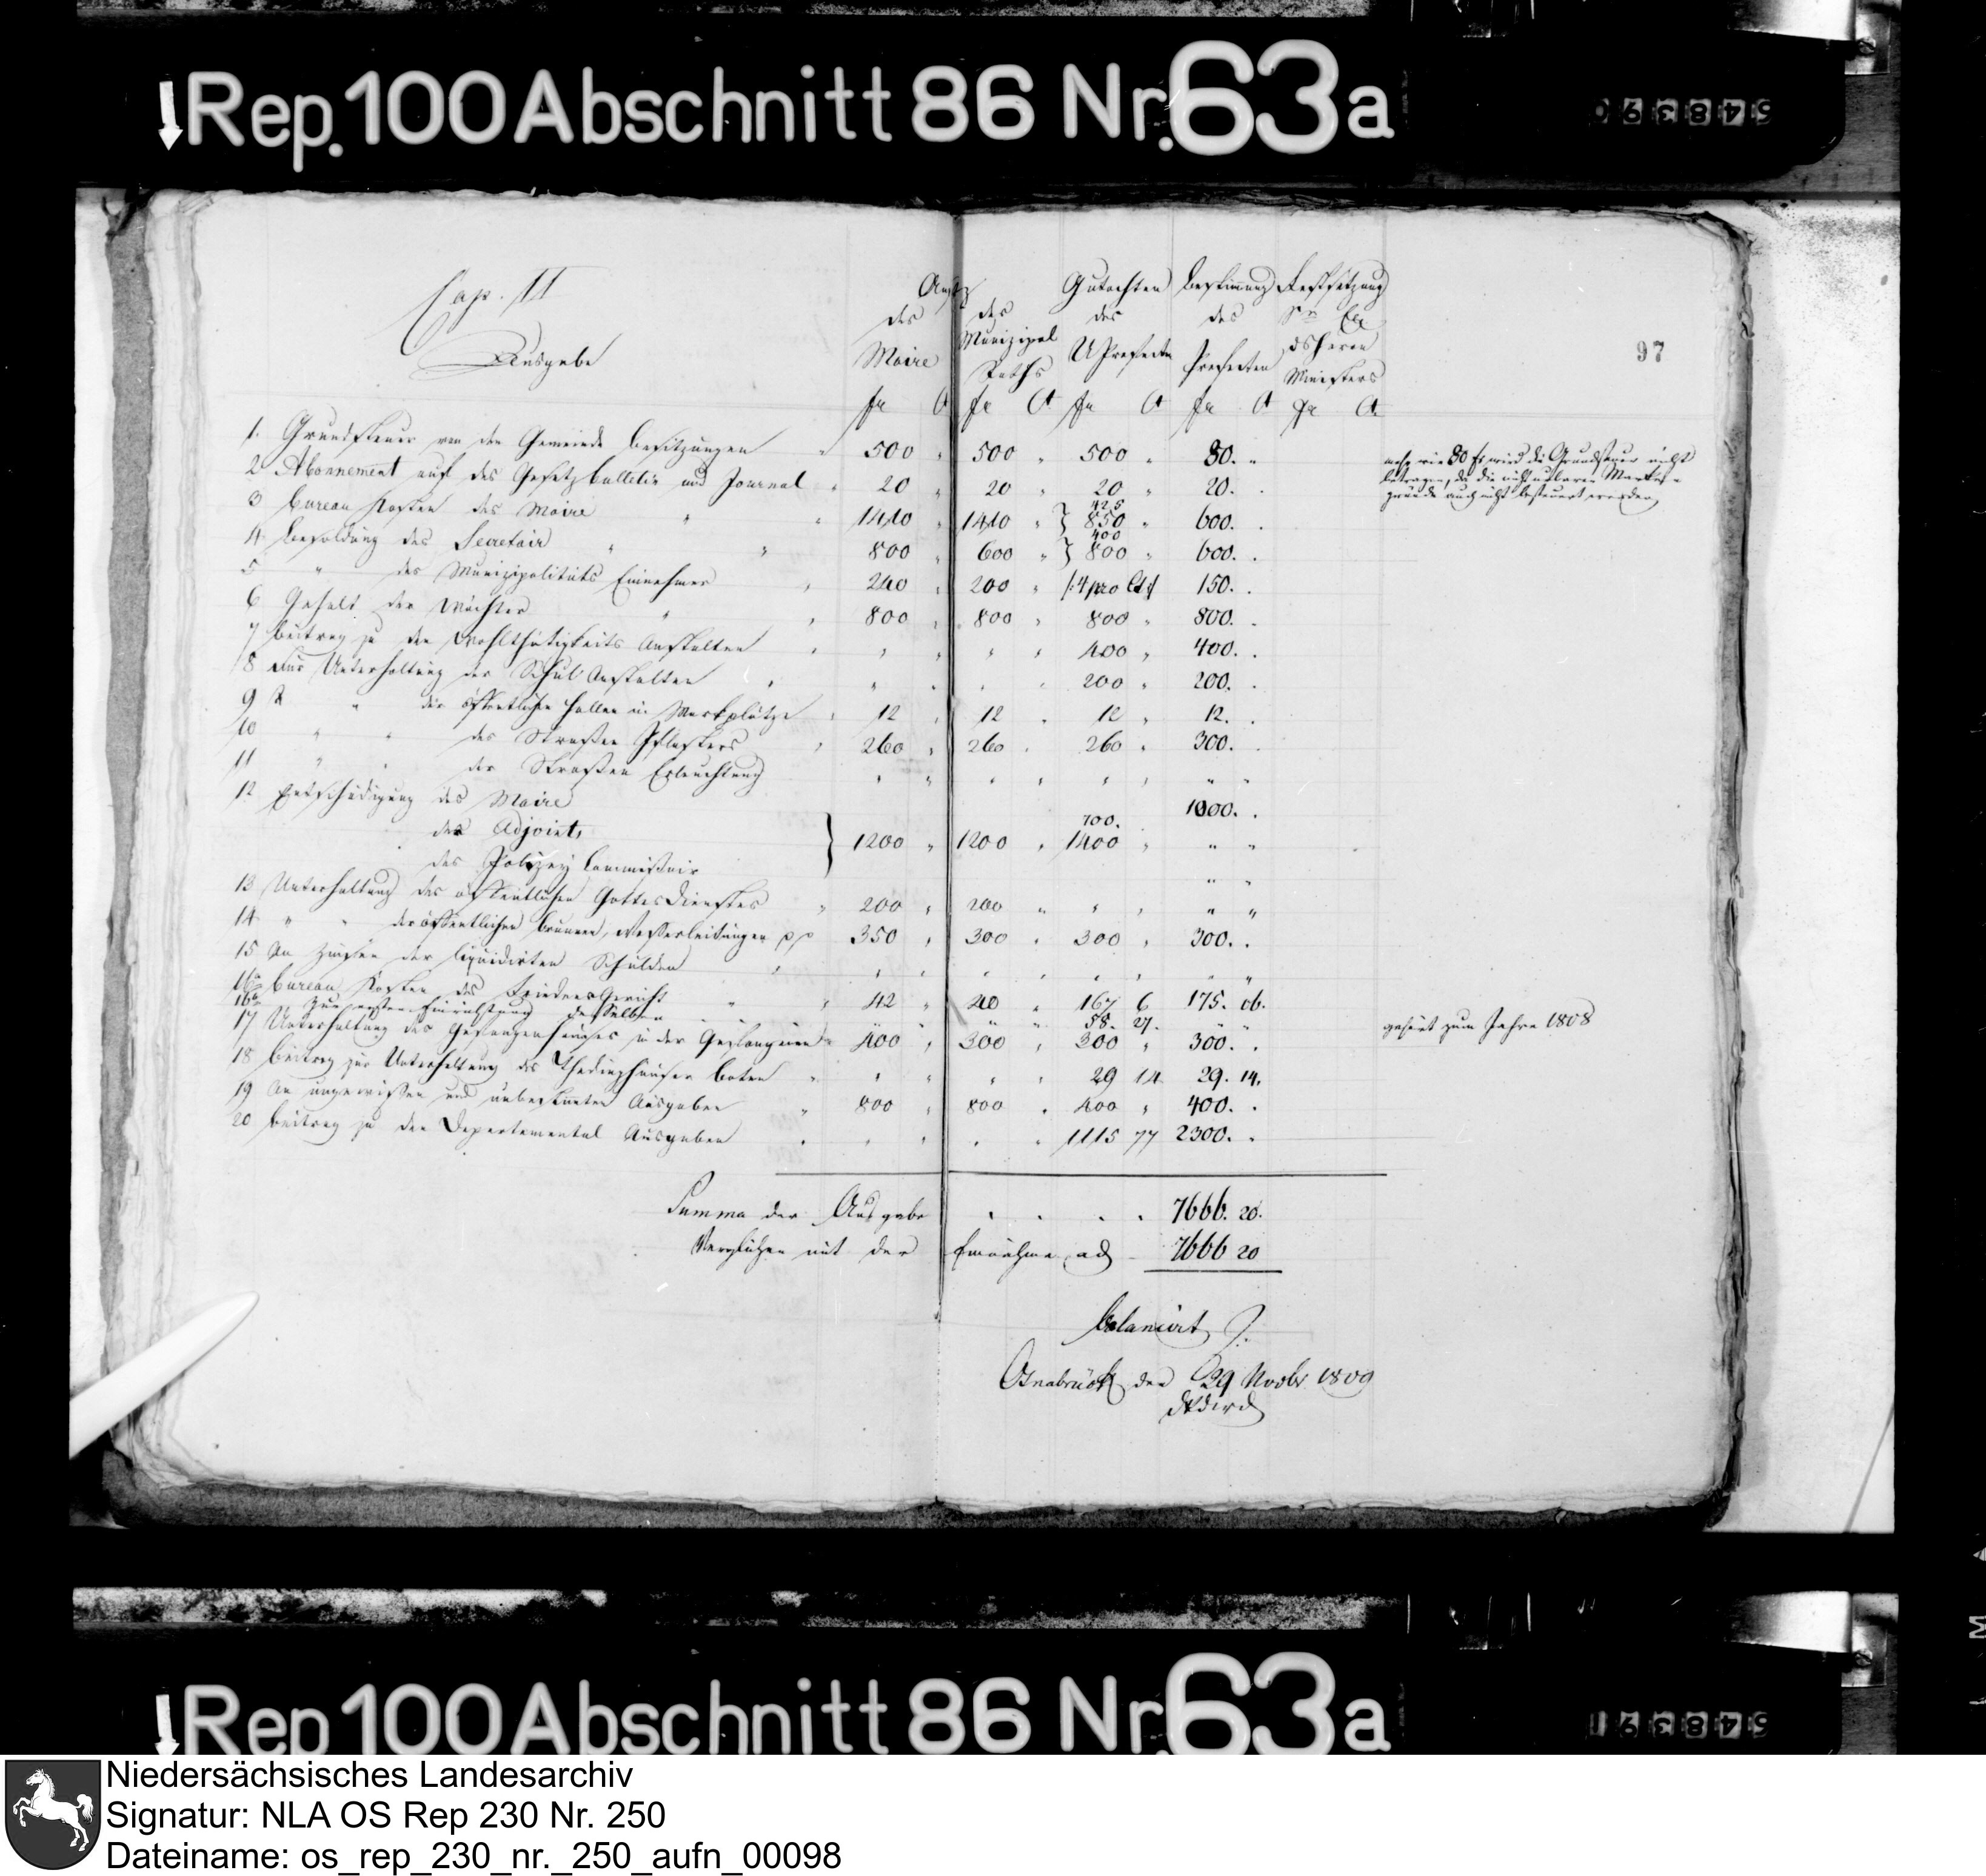 Rep. 100 Abschnitt 86 Nr. 63a
548390
Cap. II
Ausgabe
Ansatz
des Maire
des Munizipal Raths
Gutachten des UPrefecten
Bestimung des Prefecten
Festsetzung Sr Exc des Herrn Ministers
97
fr Ct fr Ct fr Ct fr Ct fr Ct
1. Grundsteuer von den Gemeinde Besitzungen " 500 " 500 " 500 " 80. "
mehr wie 80 fr wird die Grundsteuer nicht
betragen, da die nicht urbaren Marken
gründe auch nicht besteuert werden
2 Abonnement auf das Gesetzbulletin und Journal " 20 " 20 " 20 " 20. .
3 Bureau Kosten des Maire " " 1410 " 1410 " } 425 850 " 600. .
4 Besoldung des Secretair " " 800 " 600 " } 400 800 " 600. .
5 " des Munizipalitäts Einnehmer " 240 " 200 " /:4 pro Ct:/ 150. .
6 Gehalt der Wächter " " 800 " 800 " 800 " 800. .
7 Beitrag zu den Wohlthätigkeits Anstalten " " " " " 400 " 400. .
8 Zur Unterhaltung der Schul Anstalten " " " " " 200 " 200. .
9 " " der öffentlichen Hallen u Marktplätze " 12 " 12 " 12 " 12. .
10 " " des Straßen Pflasters " 260 " 260 " 260 " 300. .
11 " " der Straßen Erleuchtung " " " " " " " "
12 Entschädigung des Maire 1000. .
der Adjoint, } 1200 " 1200 " 700. 1400 " " "
des Polizey Commißair " "
13 Unterhaltung des öffentlichen Gottesdienstes " 200 " 200 " " " " "
14 " " der öffentlichen Brunnen, Wasserleitungen pp 350 " 300 " 300 " 300. .
15 An Zinsen der liquidirten Schulden " " " " " " " " "
16a Bureau Kosten des Friedens Gericht " " 42 " 40 " 167 6 175. 06.
16b zur ersten Einrichtung desselben " " " " " " 58. 27. " "
gehört zum Jahre 1808
17 Unterhaltung des Gefangenhauses u der Gefangenen " 400 " 300 " 300 " 300. .
18 Beitrag zur Unterhaltung des Thedinghäuser Boten " " " " " 29 14 29. 14.
19 An ungewissen und unbestimten Ausgaben " 800 " 800 " 400 " 400. .
20 Beitrag zu den Departemental Ausgaben " " " " " 1115 77 2300. .
Summa der Ausgabe . . . . 7666. 20.
Verglichen mit der Einnahme ad 7666 20
Balancirt
Osnabrück den 29 Novbr 1809
Rep 100 Abschnitt 86 Nr. 63a
548391
Niedersächsisches Landesarchiv
Signatur: NLA OS Rep 230 Nr. 250
Dateiname: os_rep_230_nr._250_aufn_00098